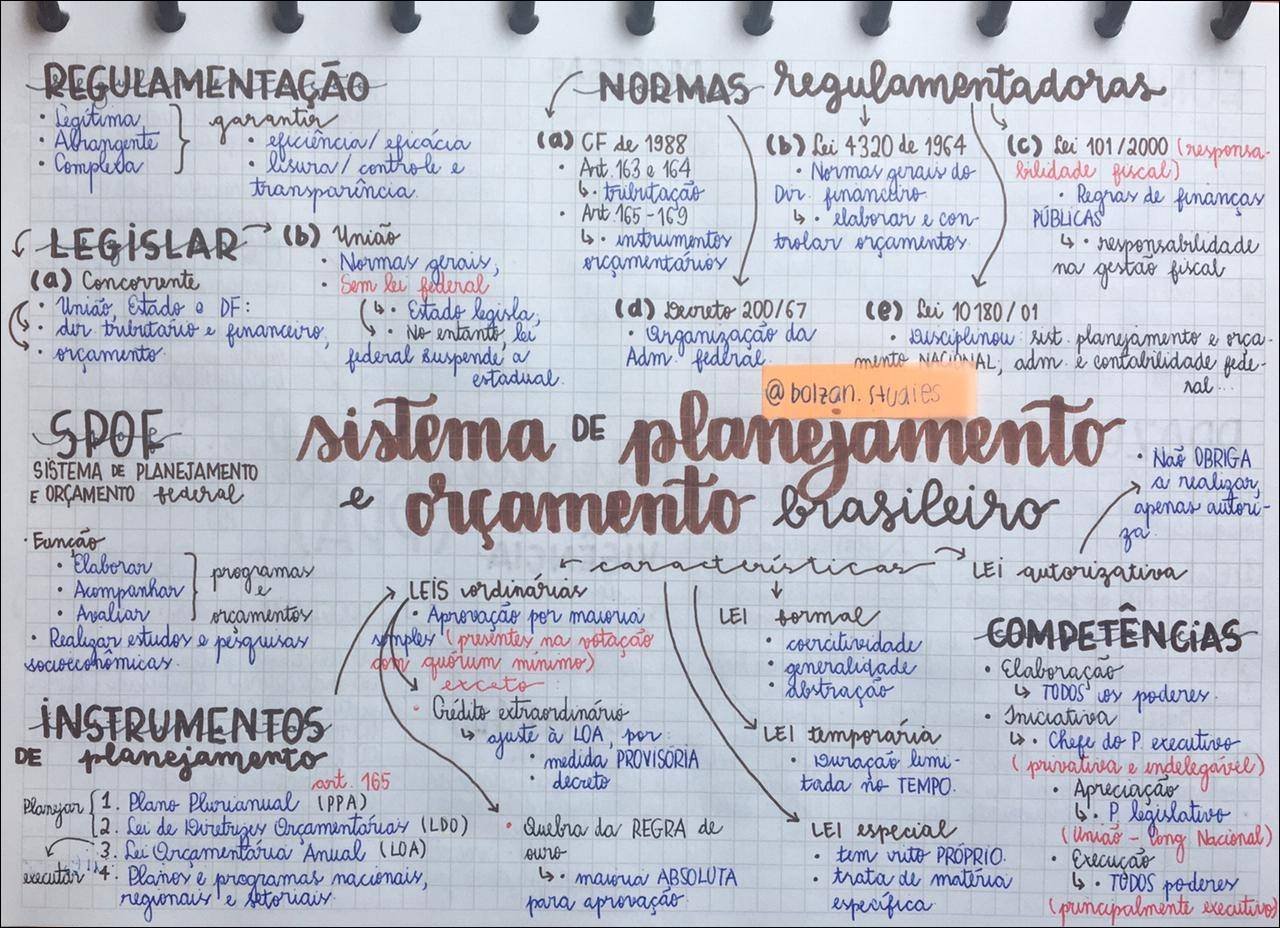 REGULAMENTAÇÃO
• Legítima
• Abrangente
• Complexa
garantir
• eficiência/ eficácia
• lisura/ controle e
transparência.
NORMAS regulamentadoras
(a) CF de 1988
• Art. 163 e 164
↳ • tributação
• Art. 165-169
↳ • instrumentos
orçamentários
(b) Lei 4320 de 1964
• Normas gerais do
Dir. financeiro.
↳ • elaborar e con-
trolar orçamentos.
(c) Lei 101/2000 (responsa-
bilidade fiscal)
• Regras de finanças
PÚBLICAS
↳ • responsabilidade
na gestão fiscal
(d) Decreto 200/67
• Organização da
Adm. federal.
(e) Lei 10180/01
• Disciplinou: sist. planejamento e orça-
mento NACIONAL; adm. e contabilidade fede-
ral...
LEGISLAR
(a) Concorrente
• União, Estado e DF:
• dir. tributário e financeiro;
• orçamento.
(b) União
• Normas gerais;
• Sem lei federal
↳ • Estado legisla;
↳ • No entanto, lei
federal suspende a
estadual.
@bolzan.studies
sistema DE planejamento
e orçamento brasileiro
SPOF
SISTEMA DE PLANEJAMENTO
E ORÇAMENTO federal
• Função
• Elaborar
• Acompanhar
• Avaliar
programas
e
orçamentos
• Realizar estudos e pesquisas
socioeconômicas.
INSTRUMENTOS
DE planejamento
art. 165
Planejar
1. Plano Plurianual (PPA)
2. Lei de Diretrizes Orçamentárias (LDO)
3. Lei Orçamentária Anual (LOA)
executar
4. Planos e programas nacionais,
regionais e setoriais.
características
LEIS ordinárias
• Aprovação por maioria
simples (presentes na votação
com quórum mínimo)
exceto:
• Crédito extraordinário
↳ ajuste à LOA, por:
• medida PROVISÓRIA
• decreto
• Quebra da REGRA de
ouro
↳ • maioria ABSOLUTA
para aprovação.
LEI formal
• coercitividade
• generalidade
• abstração
LEI temporária
• Duração limi-
tada no TEMPO.
LEI especial
• tem rito PRÓPRIO.
• trata de matéria
específica.
LEI autorizativa
• Não OBRIGA
a realizar,
apenas autori-
za.
COMPETÊNCIAS
• Elaboração
↳ TODOS os poderes.
• Iniciativa
↳ • Chefe do P. executivo
(privativa e indelegável)
• Apreciação
↳ • P. legislativo
(União - Cong Nacional)
• Execução
↳ • TODOS poderes
(principalmente executivo)